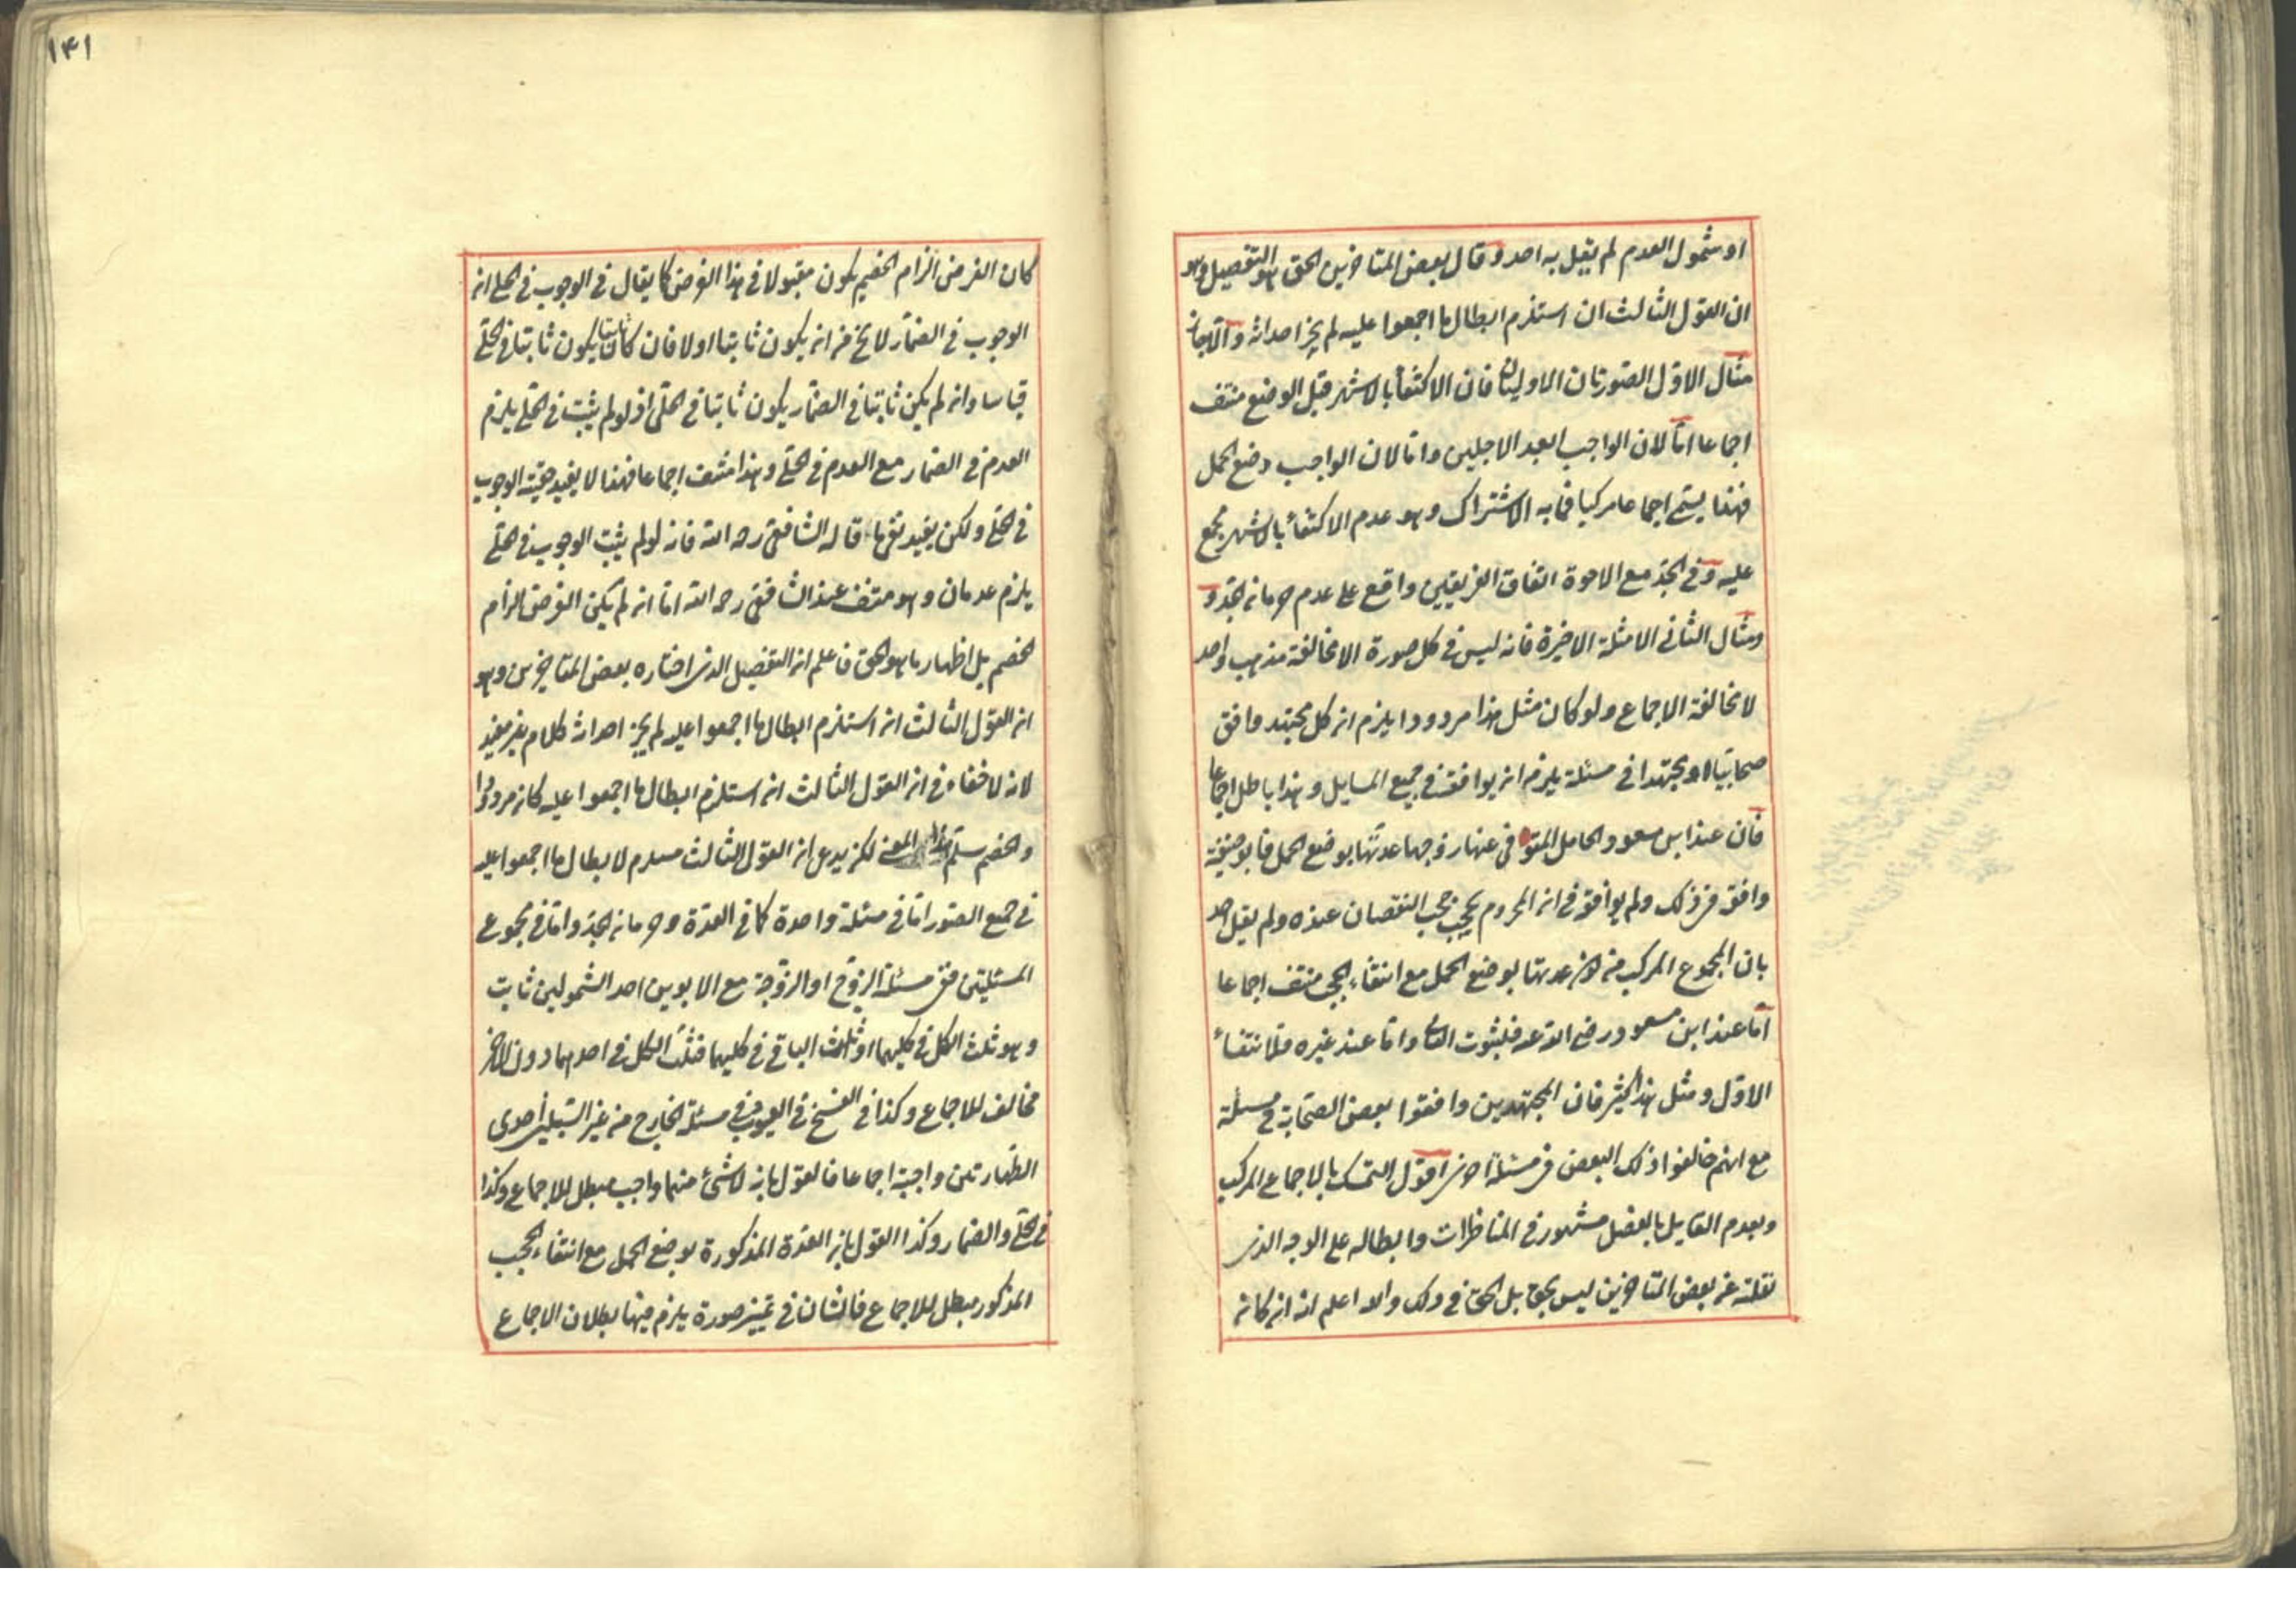 او شمول العدم لم يقل به احد وقال بعض المتاخرين الحق هو التفصيل وهو
ان القول الثالث ان استلزم ابطال ما اجمعوا عليه لم يجز احداثه والا جاز
مثال الاول الصورتان الاوليان فان الاكتفأ بالاشهر قبل الوضع منتف
اجماعا امّا لان الواجب ابعد الاجلين واما لان الواجب وضع الحمل
فهذا يسمّى اجماعا مركبا فما به الاشتراك وهو عدم الاكتفأ بالاشهر مجمع
عليه وفى الجدّ مع الاخوة اتفاق الفريقين واقع على عدم حرمان الجدّ و
ومثال الثانى الامثلة الاخيرة فانه ليس فى كل صورة الا مخالفة مذهب واحد
لا مخالفة الاجماع ولو كان مثل هذا مردودا يلزم ان كل مجتهد وافق
صحابيّا او مجتهدا فى مسئلة يلزم ان يوافقه فى جميع المسايل وهذا باطل اجماعا
فان عند ابن مسعود الحامل المتوفى عنها زوجها عدتّها بوضع الحمل فابو حنيفة
وافقه فى ذلك ولم يوافقه فى ان المحروم يحجب حجب النقصان عنده ولم يقل احد
بان المجموع المركب من كون عدتها بوضع الحمل مع انتفاء الحجب منتف اجماعا
امّا عند ابن مسعود رضى الله عنه فلثبوت الثانى واما عند غيره فلانتفأ
الاوّل ومثل هذا كثير فان المجتهدين وافقوا بعض الصحابة فى مسئلة
مع انهم خالفوا ذلك البعض فى مسئلة اخرى اقول التمسك بالاجماع المركب
وبعدم القايل بالفصل مشهور فى المناظرات وابطاله على الوجه الذى
نقلته عن بعض المتاخرين ليس بحق بل الحق فى ذلك والله اعلم انه ان كان
١٤١
كان الغرض الزام الخصم يكون مقبولا فى هذا الغرض كما يقال فى الوجوب فى الحلى ان
الوجوب فى الضمار لا يخ من ان يكون ثابتا اولا فان كان ثابتا يكون ثابتا فى الحلىّ
قياسا وان لم يكن ثابتا فى الضمار يكون ثابتا فى الحلى اذ لو لم يثبت فى الحلى يلزم
العدم فى الضمار مع العدم فى الحلى وهذا منتف اجماعا فهذا لا يفيد حقيّة الوجوب
فى الحلى ولكن يفيد نفى ما قاله الشافعى رحمه الله فانه لو لم يثبت الوجوب فى الحلىّ
يلزم عدمان وهو منتف عند الشافعى رحمه الله امّا ان لم يكن الغرض الزام
الخصم بل اظهار ما هو الحق فاعلم ان التفصيل الذى اختاره بعض المتاخرين وهو
ان القول الثالث ان استلزم ابطال ما اجمعوا عليه لم يجز احداثه كلام غير مفيد
لانه لا خفاء فى ان القول الثالث ان استلزم ابطال ما اجمعوا عليه كان مردودا
والخصم يسلّم هذا المعنى لكن يدعى ان القول الثالث مستلزم لابطال ما اجمعوا عليه
فى جميع الصور امّا فى مسئلة واحدة كما فى العدّة وحرمان الجدّ وامّا فى مجموع
المسئلتين ففى مسئلة الزوج او الزوجة مع الابوين احد الشمولين ثابت
وهو ثلث الكل فى كليهما او ثلث الباقى فى كليهما فثلث الكل فى احدهما دون الاخر
مخالف للاجماع وكذا فى الفسخ فى العيوب وفى مسئلة الخارج من غير السبيلين احدى
الطهارتين واجبة اجماعا فالقول بان لا شئ منهما واجب مبطل للاجماع وكذا
فى الحلى والضمار وكذا القول بان العدّة المذكورة بوضع الحمل مع انتفاء الحجب
المذكور مبطل للاجماع فالشان فى تمييز صورة يلزم فيها بطلان الاجماع